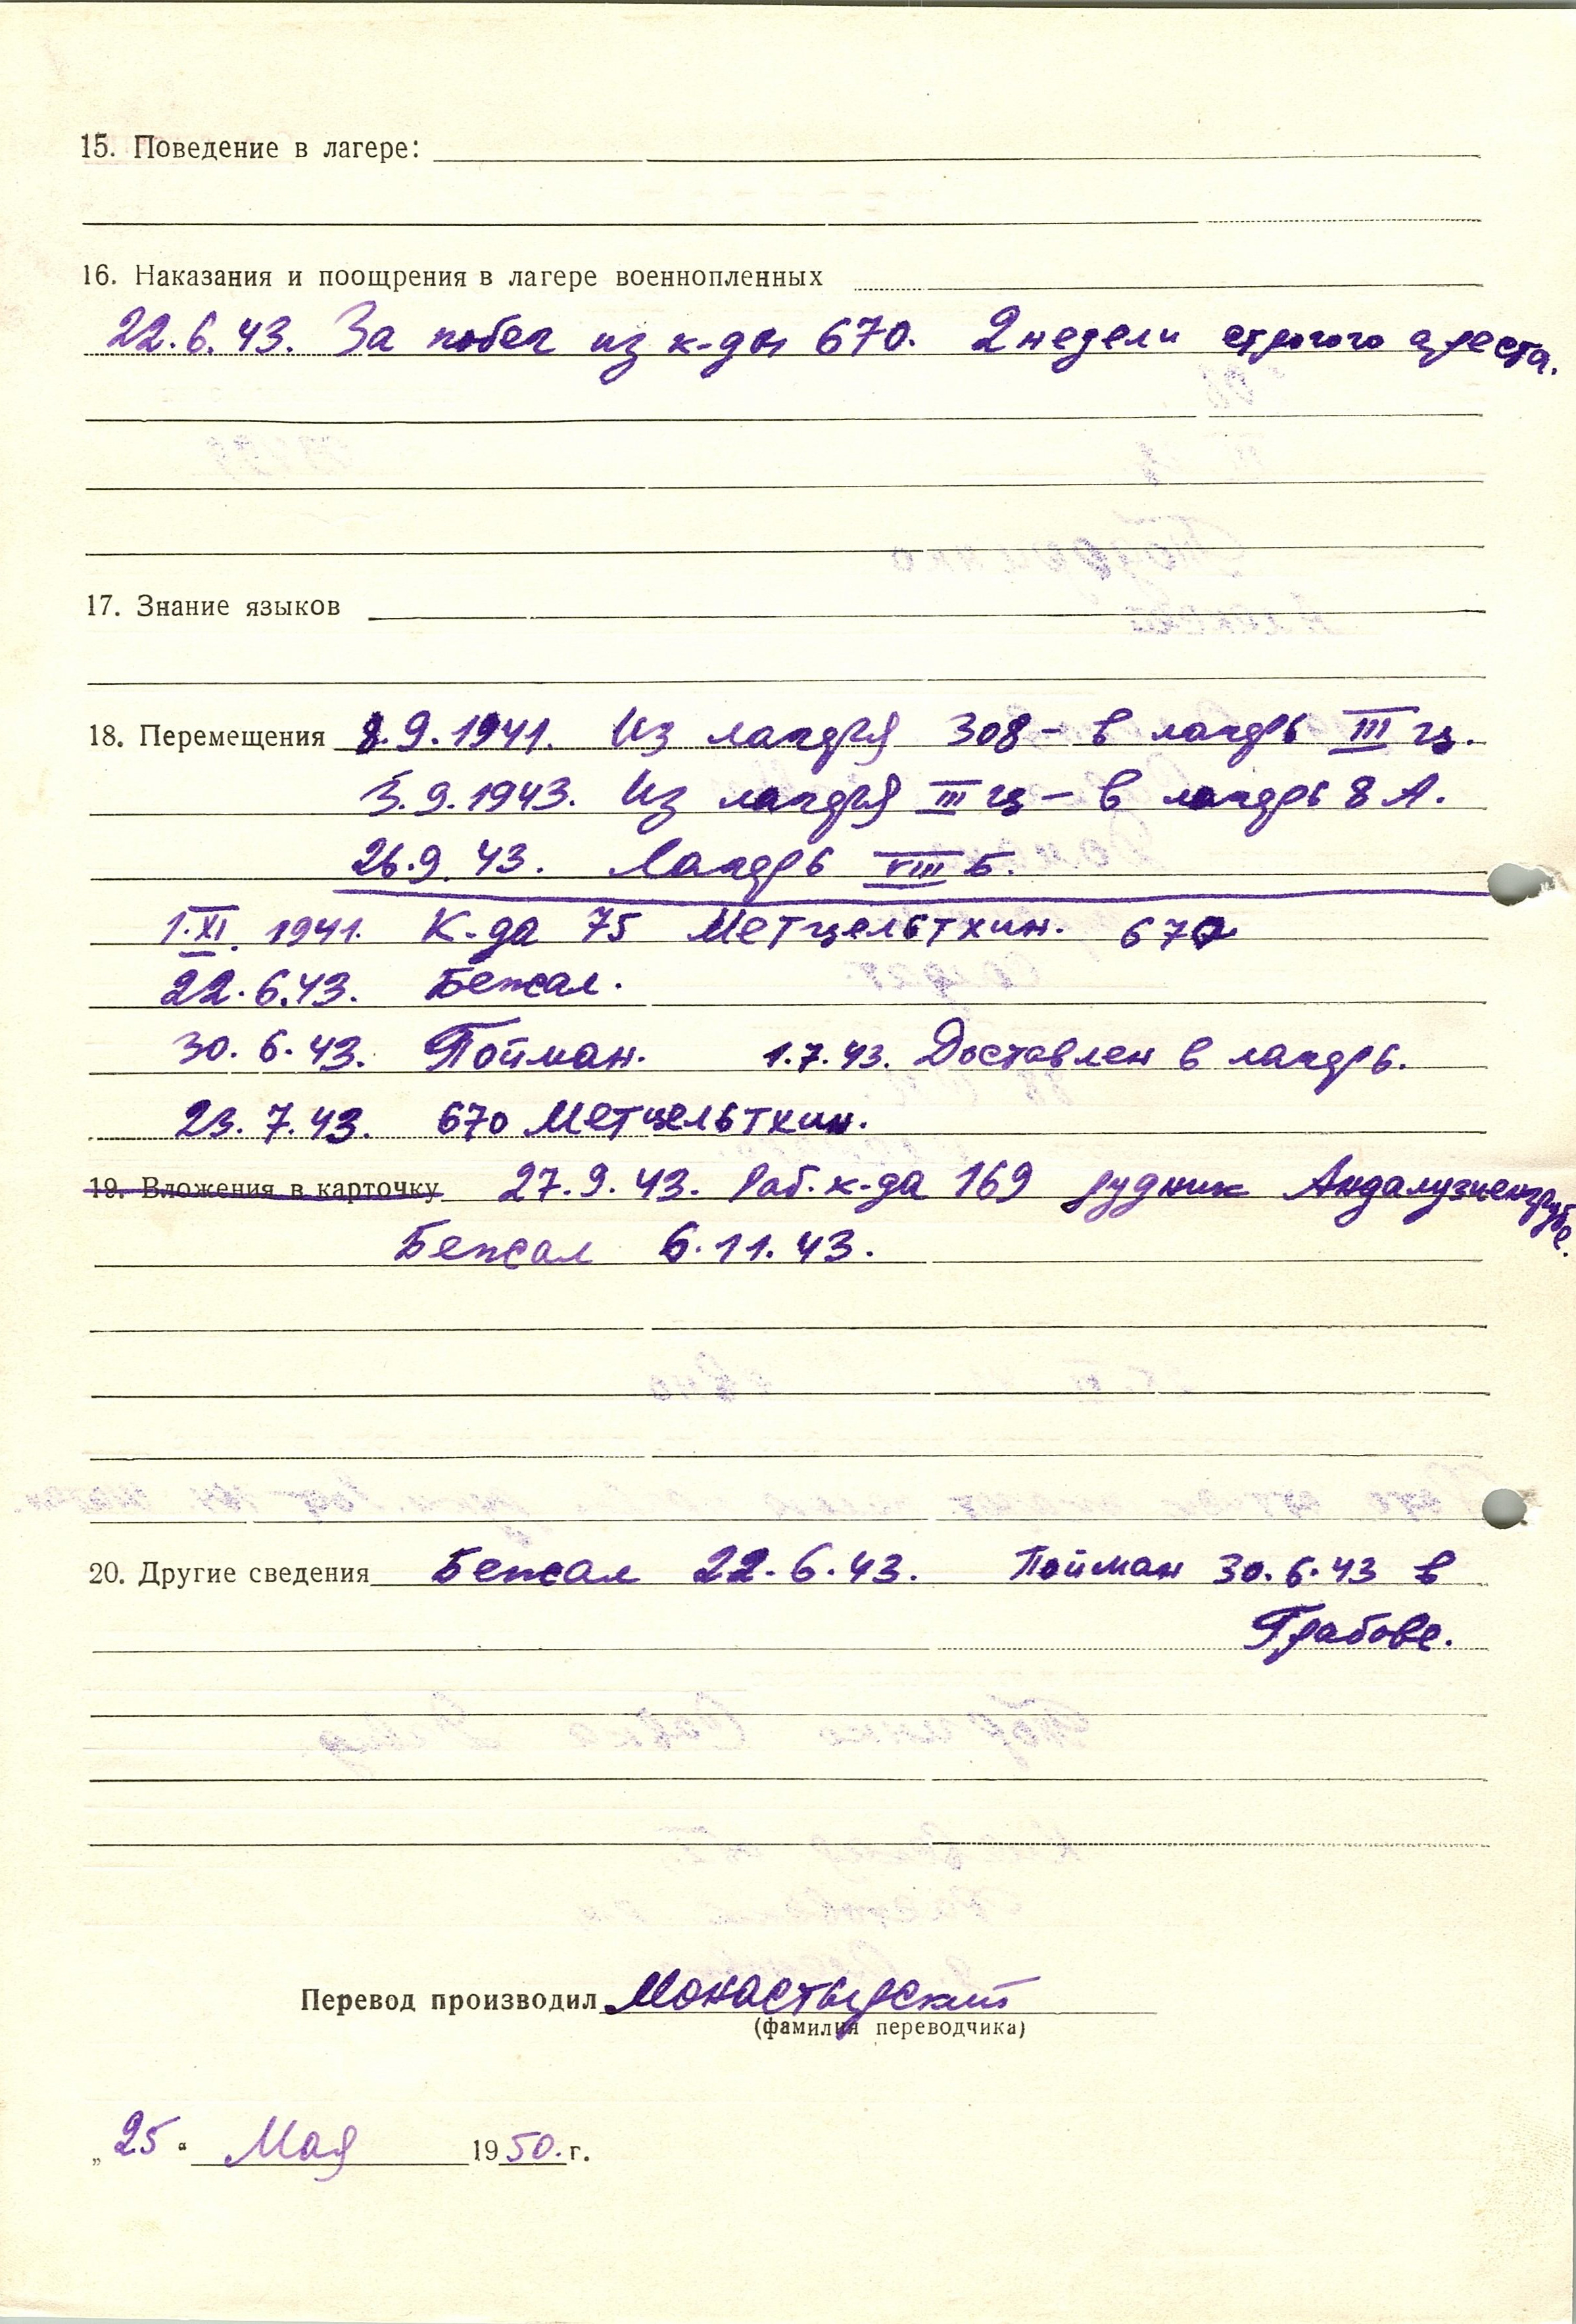 15. Поведение в лагере:
16. Наказания и поощрения в лагере военнопленных
22.6.43. За побег из к-ды 670. 2 недели строгого ареста.
17. Знание языков
18. Перемещения 8.9.1941. Из лагеря 308 – в лагерь III ц.
3.9.1943. Из лагеря III ц – в лагерь 8 А.
26.9.43. Лагерь VIII Б.
1.XI.1941. К-да 75 Метцельтхин. 670
22.6.43. Бежал.
30.6.43. Пойман. 1.7.43. Доставлен в лагерь.
23.7.43. 670 Метцельтхин.
19. Вложения в карточку 27.9.43. Раб. к-да 169 рудник Андалузиенгрубе.
Бежал 6.11.43.
20. Другие сведения Бежал 22.6.43. Пойман 30.6.43 в
Грабове.
Перевод производил Монастырский
(фамилия переводчика)
„25“ Мая 1950.г.